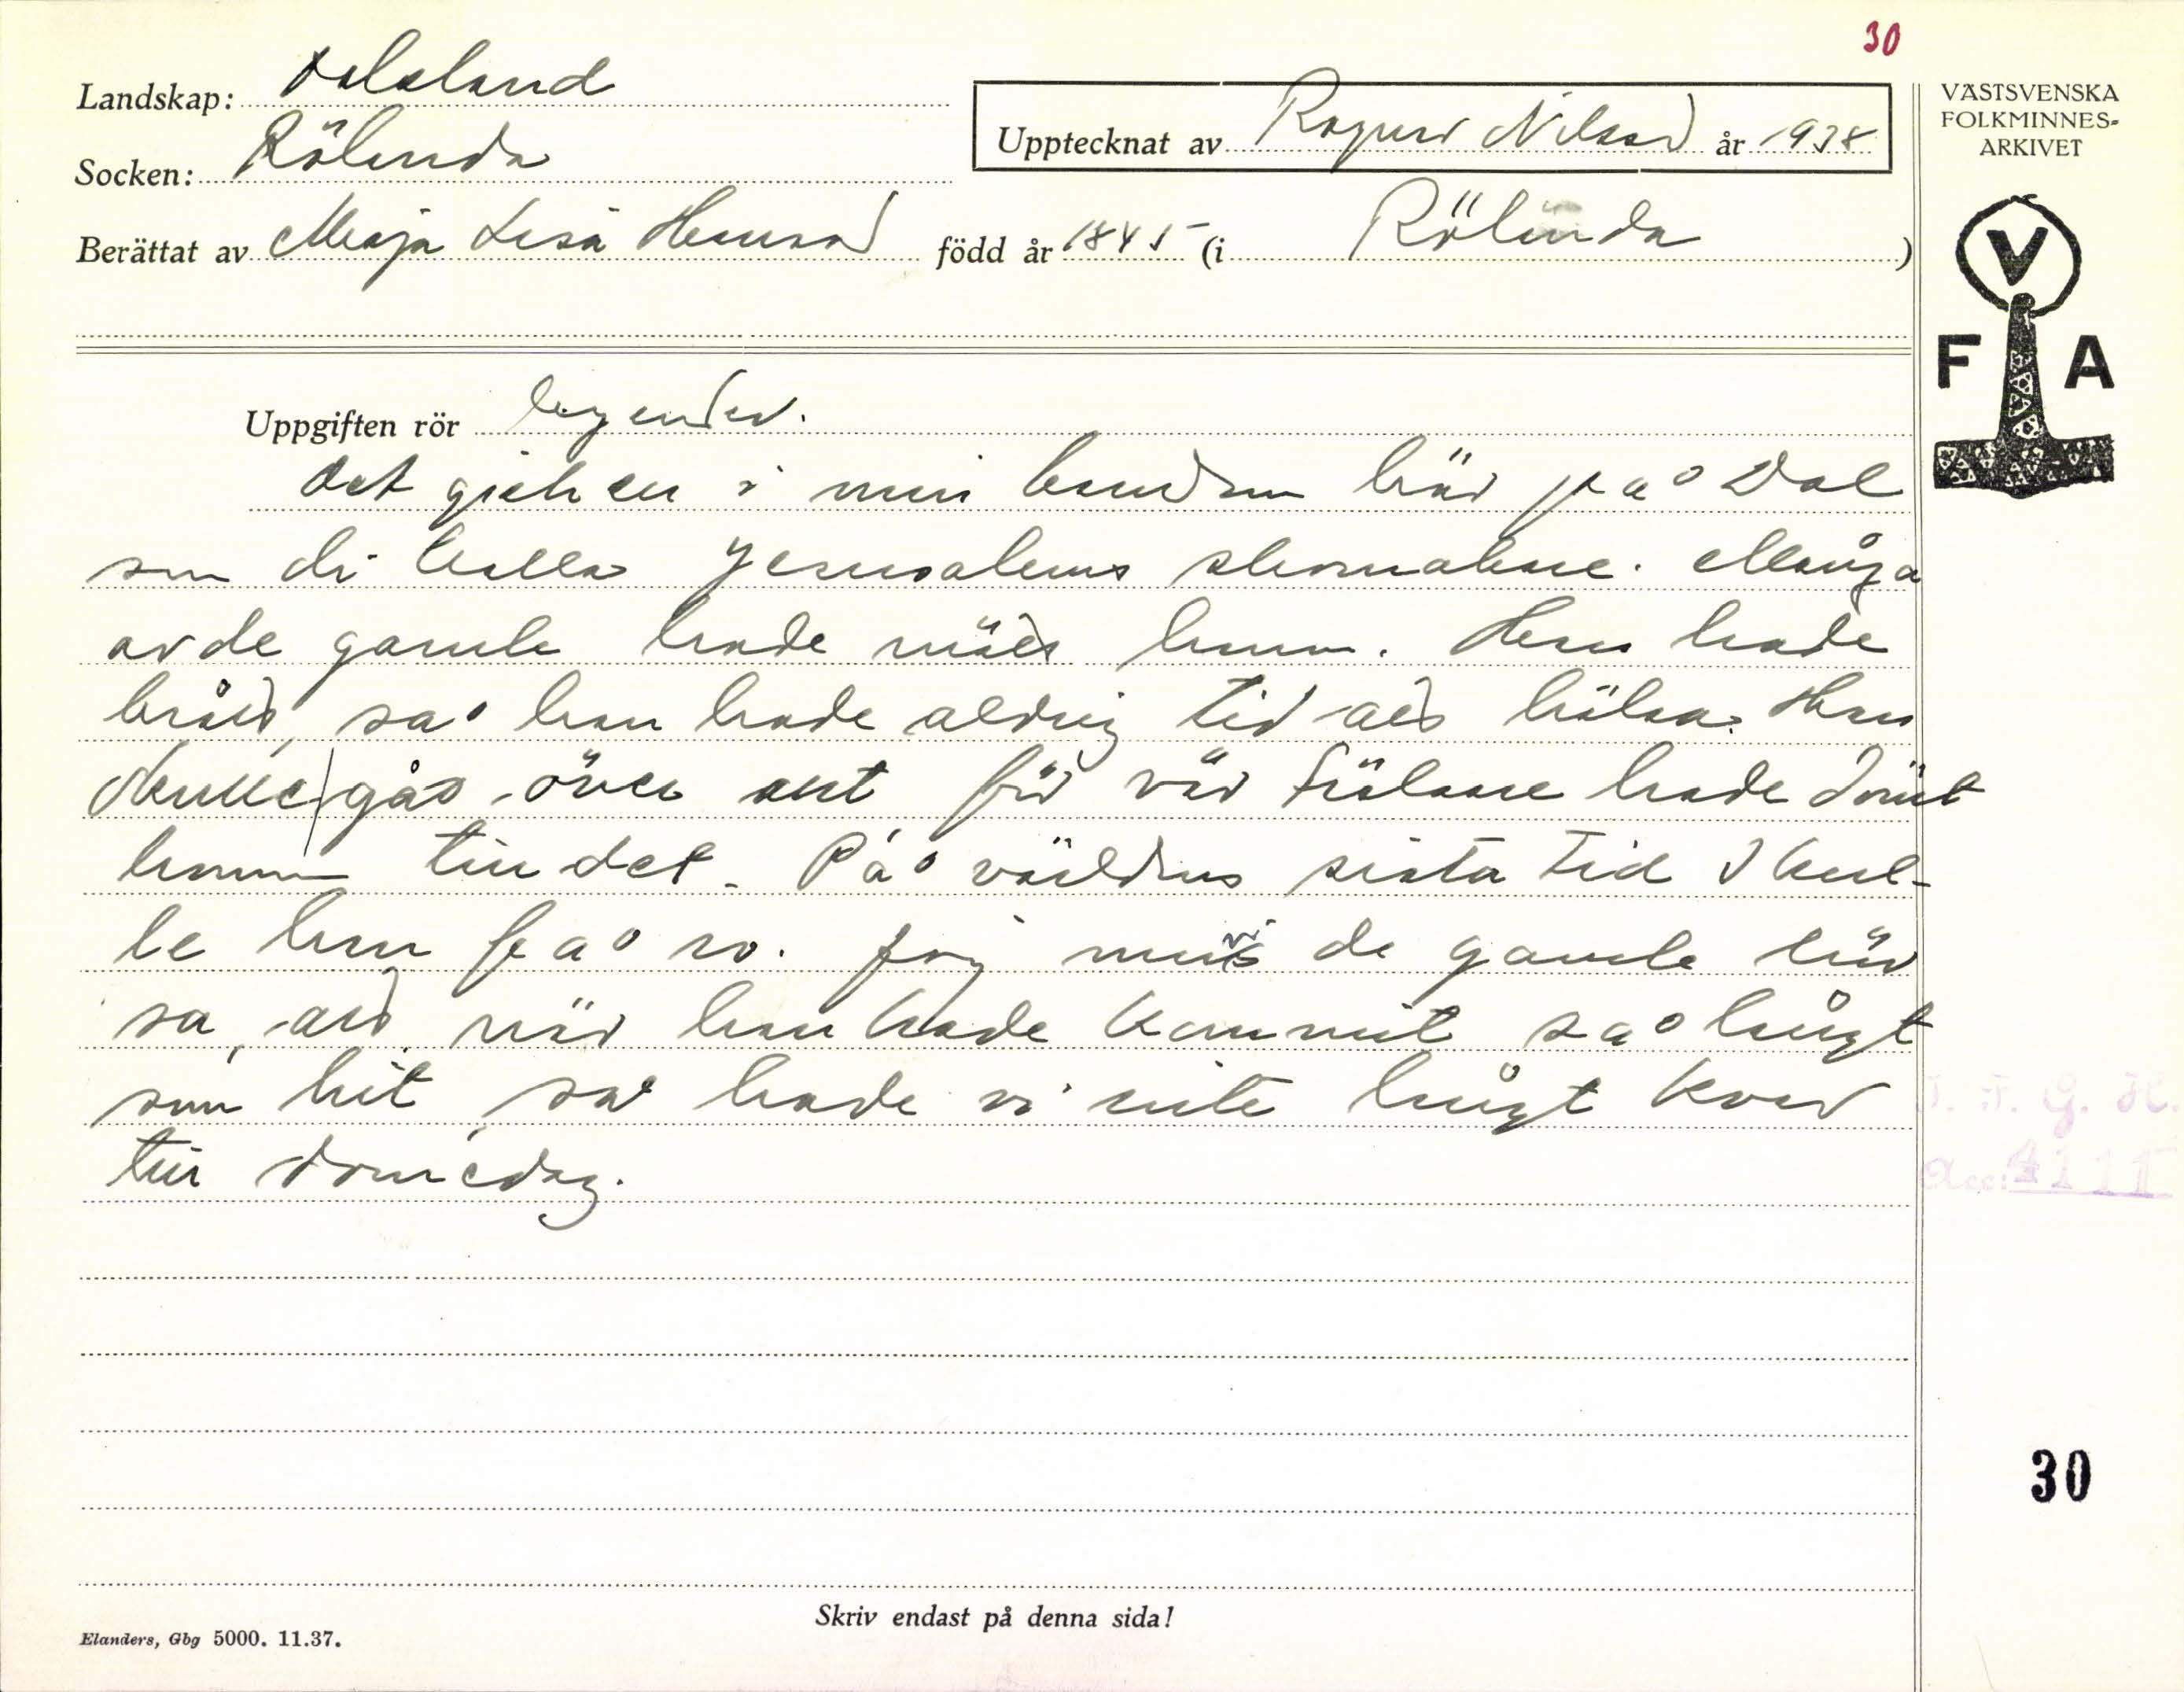 30
Landskap: Dalsland
Socken: Rölanda
Upptecknat av Ragnar Nilsson år 1938
Berättat av Maja Lisa Hansson född år 1845 (i Rölanda)
VÄSTSVENSKA
FOLKMINNES-
ARKIVET
V
F A
Uppgiften rör legender.
Det gick en i min barndom här på Dal
som di kalla Jerusalems skomakare. Många
av de gamle hade mött honom. Han hade
brått, så han hade aldrig tid att hälsa. Han
skulle gå över allt för vår frälsare hade dömt
honom till det. På världens sista tid skul-
le han få ro. Jag minns de gamle här
sa, att när han hade kommit så långt
som hit, så hade vi inte långt kvar
till domedag.
J. F. G. H.
Acc: 4111
30
Skriv endast på denna sida!
Elanders, Gbg 5000. 11.37.